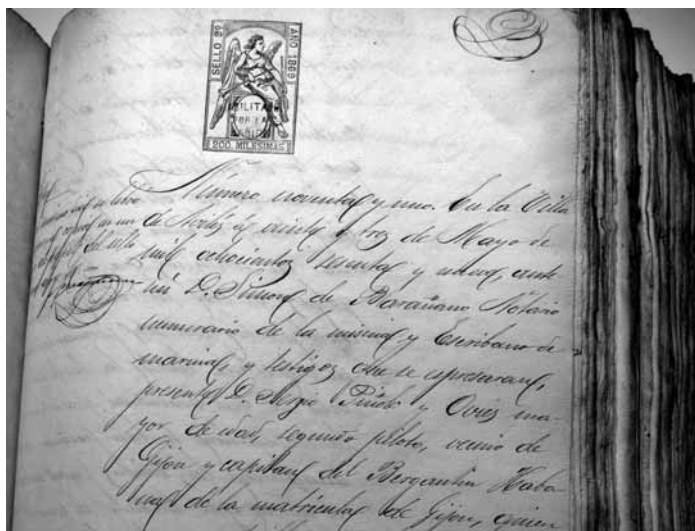 SELLO 9º
AÑO 1869
HABILITADO
POR LA
NACION
200. MILESIMAS
Número noventa y uno. En la Villa
de Avilés á veinte y tres de Mayo de
mil ochocientos sesenta y nueve, ante
mi D. Simon de Barañano Notario
numerario de la misma y Escribano de
marina, y testigos que se espresaran,
presente D. Sergio Piñole y Ovies ma-
yor de edad, segundo piloto, vecino de
Gijon y capitan del Bergantin Haba
na, de la matricula de Gijon, quien